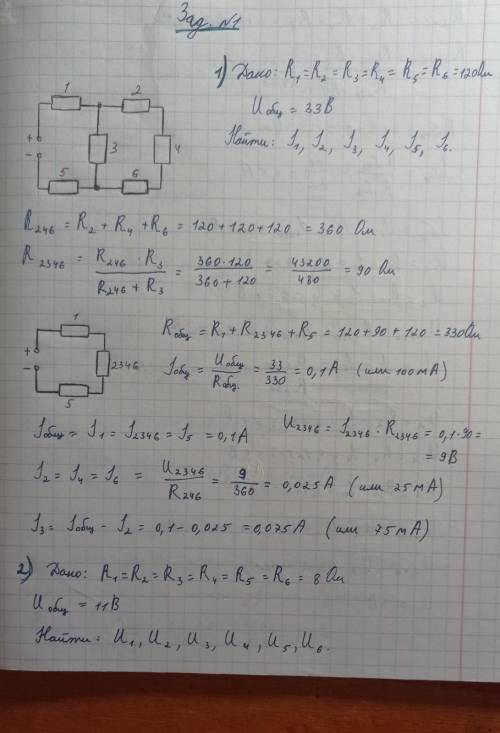 Зад. №1
1) Дано: R₁ = R₂ = R₃ = R₄ = R₅ = R₆ = 120 Ом
U общ = 33 В
Найти: I₁, I₂, I₃, I₄, I₅, I₆.
1 2
+
- 3 4
5 6
R₂₄₆ = R₂ + R₄ + R₆ = 120 + 120 + 120 = 360 Ом
R₂₃₄₆ = R₂₄₆ · R₃ / R₂₄₆ + R₃ = 360 · 120 / 360 + 120 = 43200 / 480 = 90 Ом
1
+
- 2346
5
Rобщ = R₁ + R₂₃₄₆ + R₅ = 120 + 90 + 120 = 330 Ом
Iобщ = Uобщ / Rобщ. = 33 / 330 = 0,1 А (или 100 мА)
Iобщ = I₁ = I₂₃₄₆ = I₅ = 0,1 А
U₂₃₄₆ = I₂₃₄₆ · R₂₃₄₆ = 0,1 · 90 =
= 9 В
I₂ = I₄ = I₆ = U₂₃₄₆ / R₂₄₆ = 9 / 360 = 0,025 А (или 25 мА)
I₃ = Iобщ - I₂ = 0,1 - 0,025 = 0,075 А (или 75 мА)
2) Дано: R₁ = R₂ = R₃ = R₄ = R₅ = R₆ = 8 Ом
U общ = 11 В
Найти: U₁, U₂, U₃, U₄, U₅, U₆.